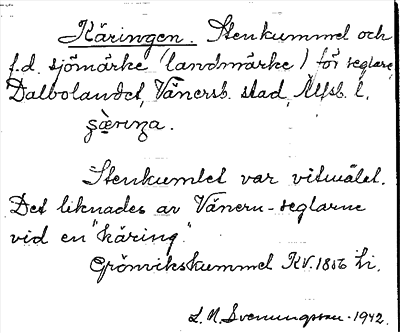 Käringen. Stenkummel och
f.d. sjömärke (landmärke) för seglare,
Dalbolandet, Vänersb. stad, Älfsb. l.
Stenkumlet var vitmålat.
Det liknades av Vänern-seglarne
vid en "käring".
Grönvikskummel KV. 1856 Li.
L. M. Svenungsson. 1942.